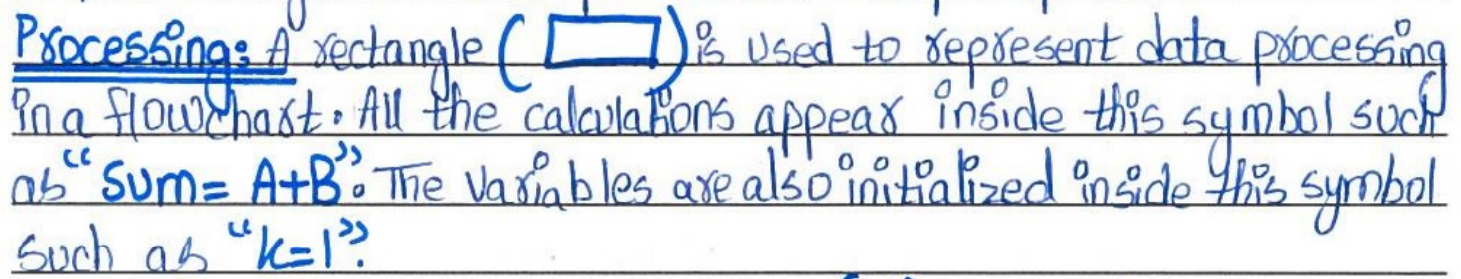 Processing: A rectangle ( ) is used to represent data processing
in a flowchart. All the calculations appear inside this symbol such
as “Sum= A+B”. The variables are also initialized inside this symbol
such as “k=1”.